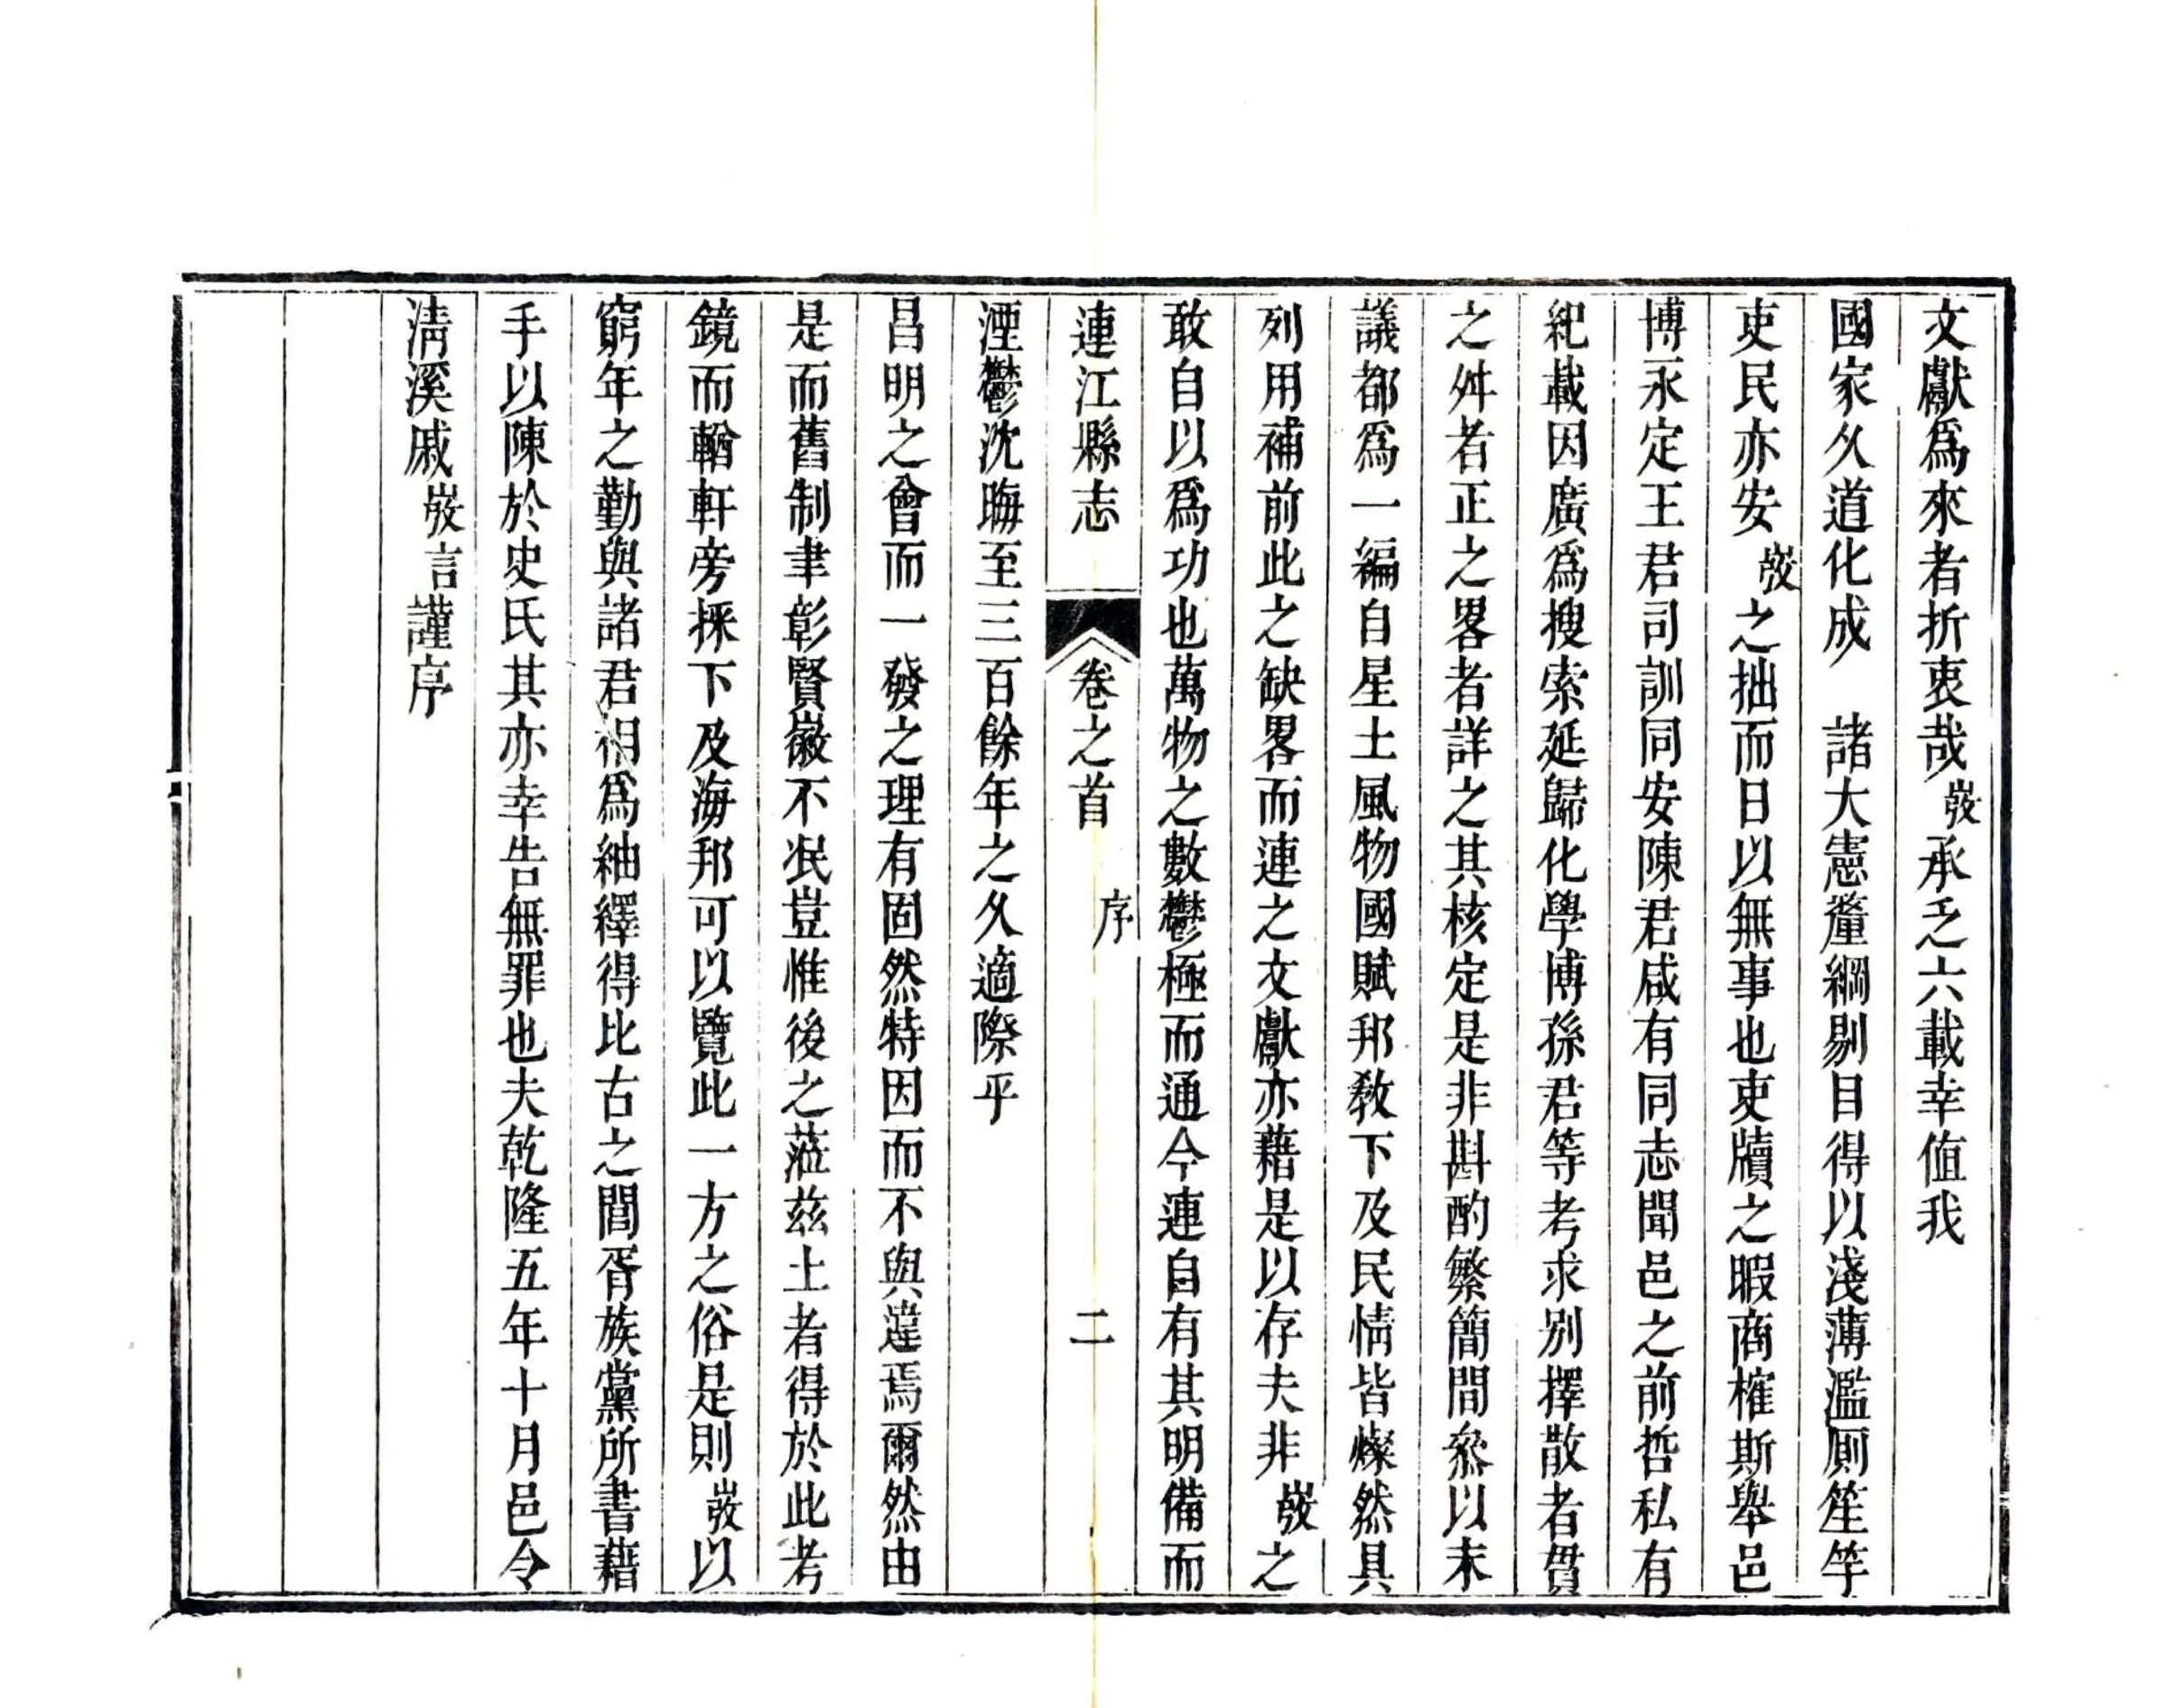 文獻爲來者折衷哉弢承乏六載幸值我
國家久道化成　諸大憲釐綱剔目得以淺薄濫厠笙竽
吏民亦安弢之拙而日以無事也吏牘之暇商榷斯舉邑
博永定王君司訓同安陳君咸有同志聞邑之前哲私有
紀載因廣爲搜索延歸化學博孫君等考求别擇散者貫
之舛者正之畧者詳之其核定是非斟酌繁簡間叅以末
議都爲一編自星土風物國賦邦教下及民情皆燦然具
列用補前此之缺畧而連之文獻亦藉是以存夫非弢之
敢自以爲功也萬物之數鬱極而通今連自有其明備而
連江縣志　卷之首　序　二
湮鬱沈晦至三百餘年之久適際乎
昌明之會而一發之理有固然特因而不與違焉爾然由
是而舊制聿彰賢徽不泯豈惟後之蒞茲土者得於此考
鏡而輶軒旁採下及海邦可以覽此一方之俗是則弢以
窮年之勤與諸君相爲紬繹得比古之閭胥族黨所書藉
手以陳於史氏其亦幸告無罪也夫乾隆五年十月邑令
淸溪戚弢言謹序